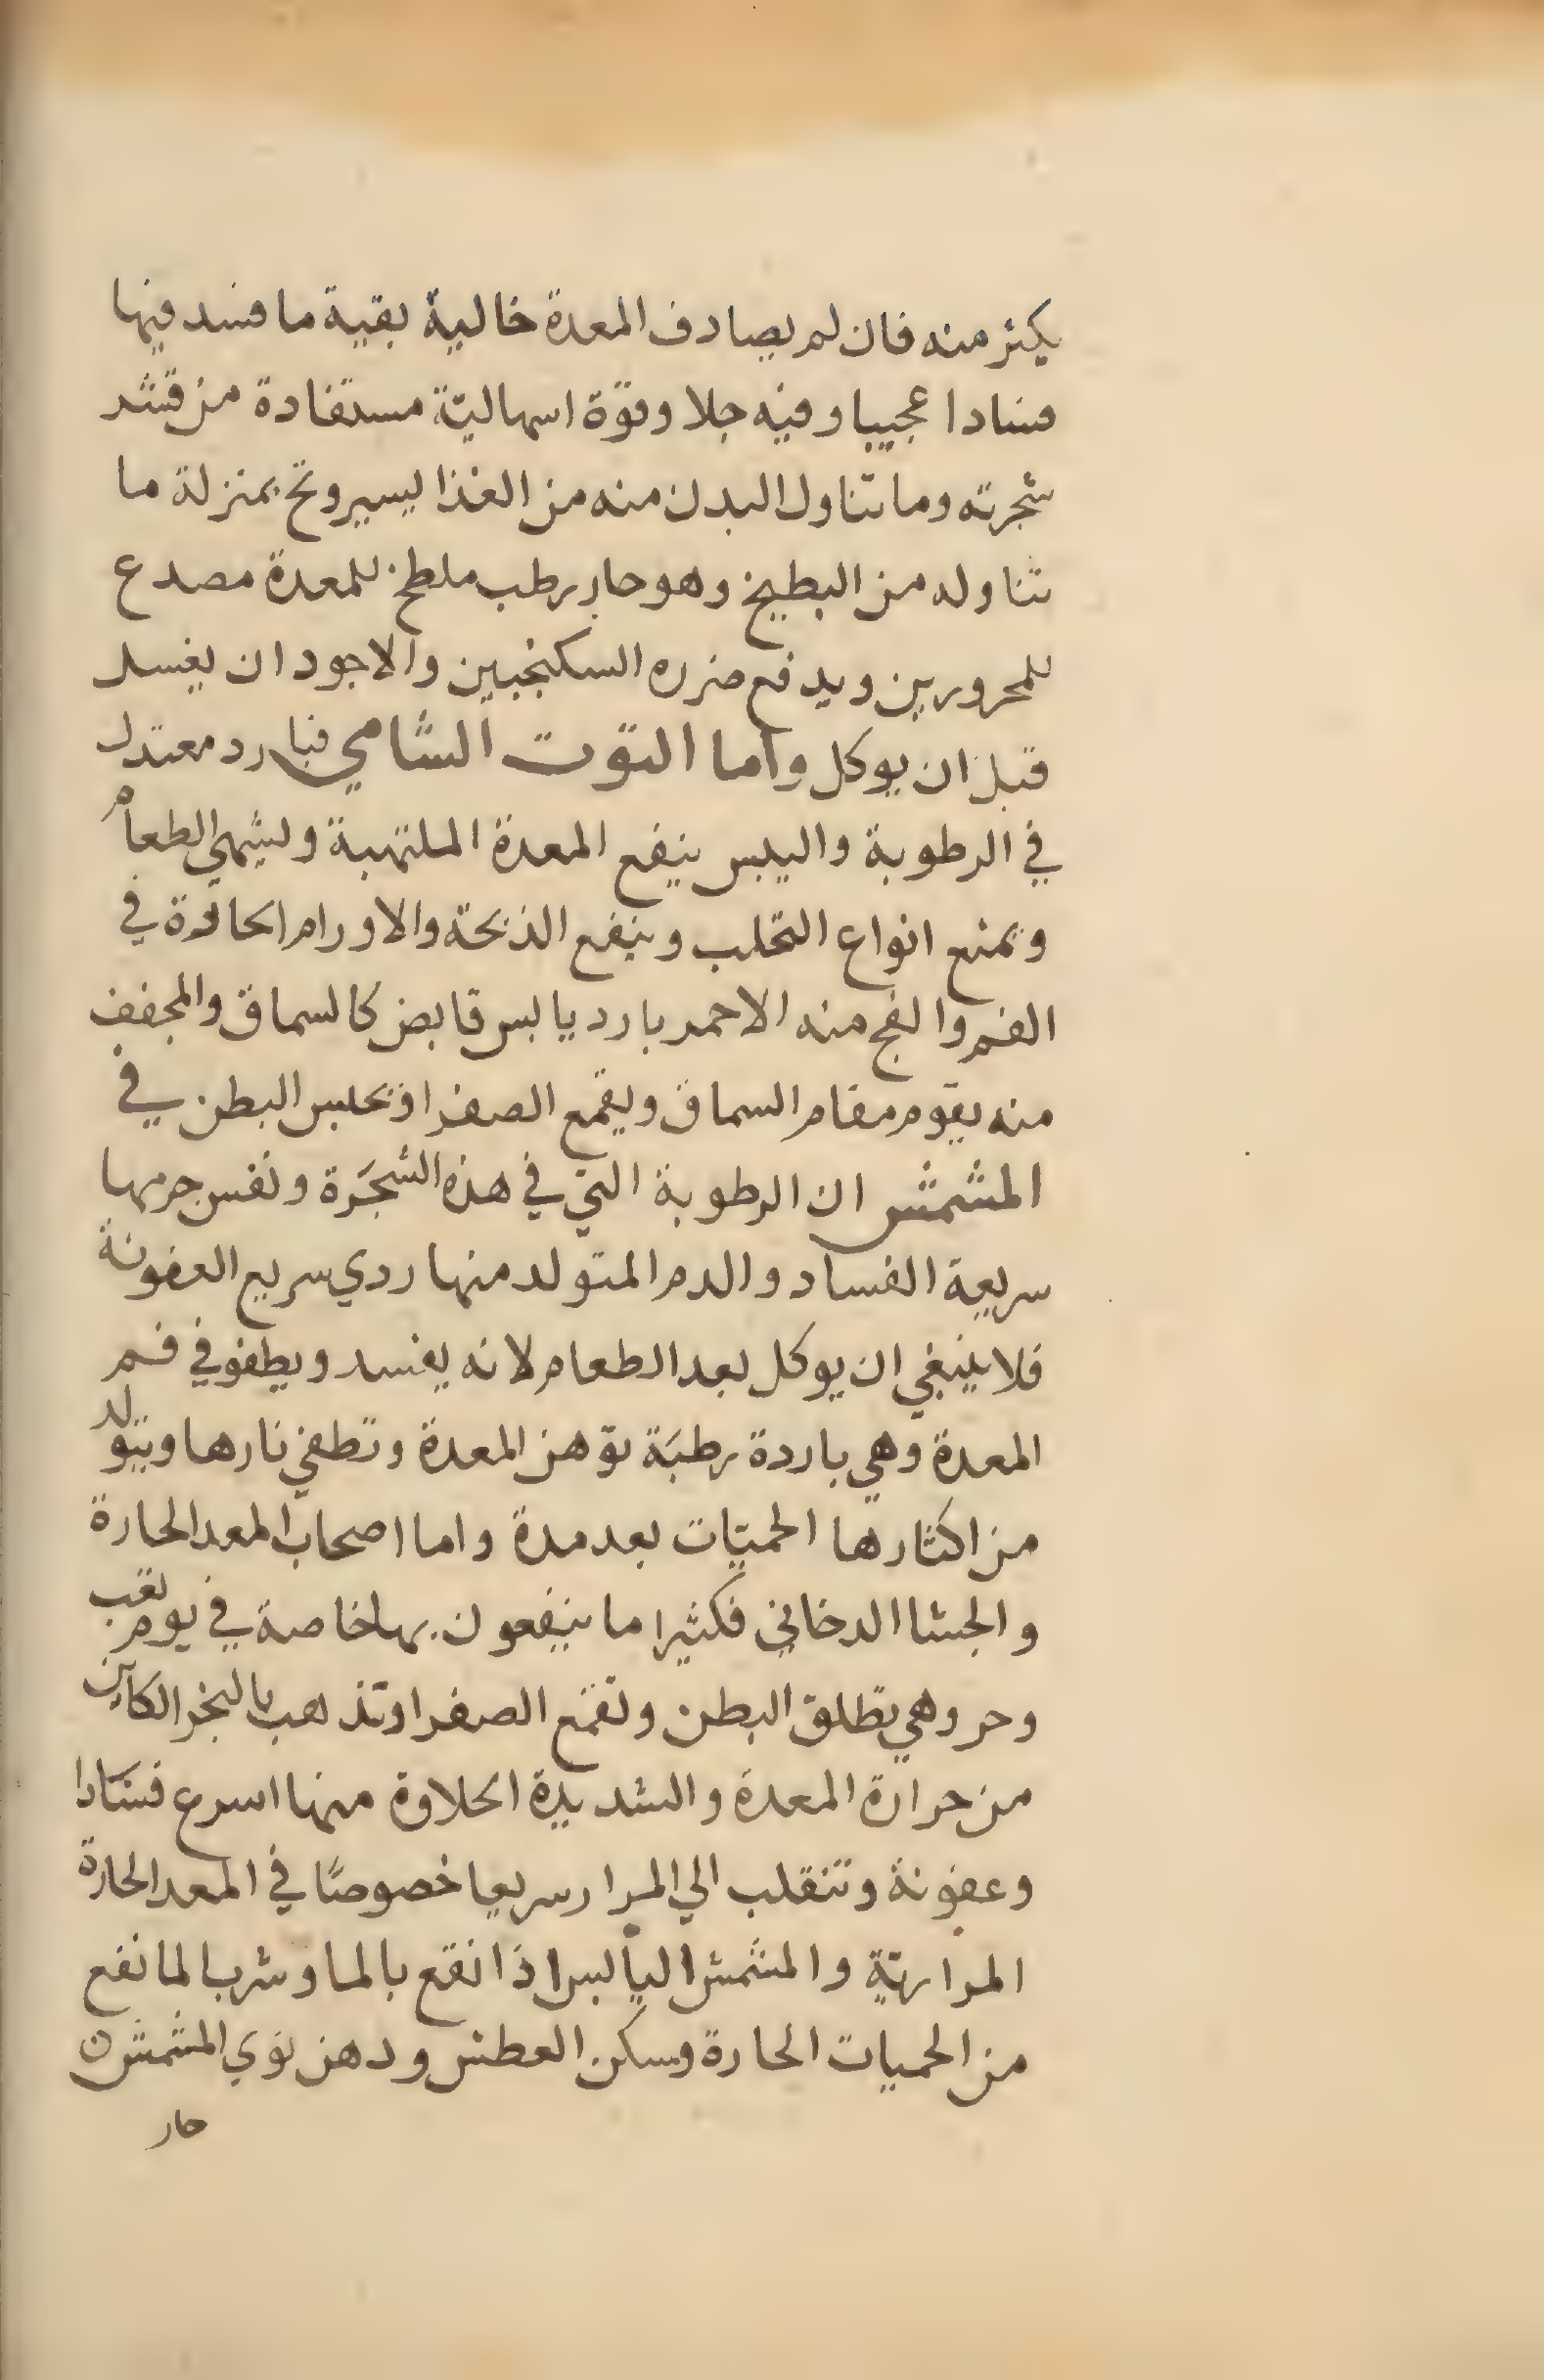 يكثر منه فان لم يصادف المعدة خالية بقية ما فسد فيها
فسادا عجيبا وفيه جلا وقوة اسهاليّة مستفادة من قشر
شجرته وما تناول البدن منه من الغذا يسير وتح بمنزلة ما
تناوله من البطيخ وهو حار رطب ملطخ للمعدة مصدع
للمحرورين ويدفع ضرره السكنجبين والاجود ان يغسل
قبل ان يوكل واما التوت الشامي فبارد معتدل
في الرطوبة واليبس ينفع المعدة الملتهبة ويشهي الطعام
ويمنع انواع التحلب وينفع الذبحة والاورام الحادة في
الفم والفج منه الاحمر بارد يابس قابض كالسماق والمجفف
منه يقوم مقام السماق ويقمع الصفرا ويحبس البطن في
المشمش ان الرطوبة التي في هذه الشجَرة ونفس جرمها
سريعة الفساد والدم المتولد منها ردي سريع العفونة
فلا ينبغي ان يوكل بعد الطعام لانه يفسد ويطفو في فم
المعدة وهي باردة رطبَة توّهن المعدة وتطفي نارها ويتولد
من اكثارها الحميّات بعد مدة واما اصحاب المعد الحارة
والجشا الدخاني فكثيرا ما ينفعون بها خاصة في يوم تعب
وحر وهي تطلق البطن وتقمع الصفرا وتذهب بالبخر الكاين
من حرارة المعدة والشديدة الحلاوة منها اسرع فسَادا
وعفونة وتنقلب الي المرار سريعا خصوصًا في المعد الحارة
المراريّة والمشمش اليابس اذا نقع بالما وشرب الما نفع
من الحميات الحارة وسكن العطش ودهن نوي المشمش ن
حار